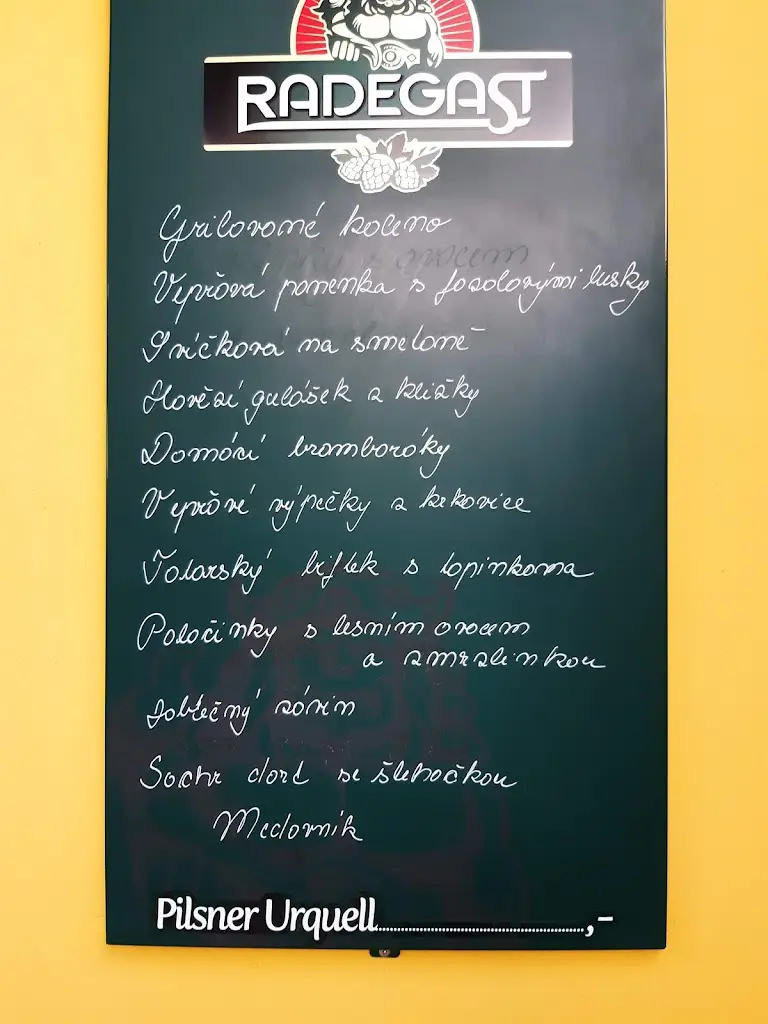 RADEGAST
Grilované koleno
Vepřová panenka s fazolovými lusky
Svíčková na smetaně
Hovězí gulášek z kližky
Domácí bramboráky
Vepřové výpečky z krkovice
Tatarský biftek s topinkama
Palačinky s lesním ovocem
a zmrzlinkou
Jablečný závin
Sachr dort se šlehačkou
Medovník
Pilsner Urquell..........,-